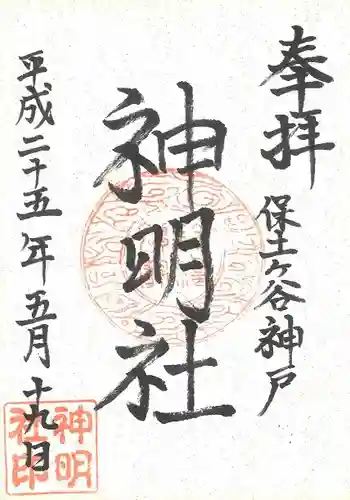 奉拝
保土ヶ谷神戸
神明社
平成二十五年五月十九日
神明社印